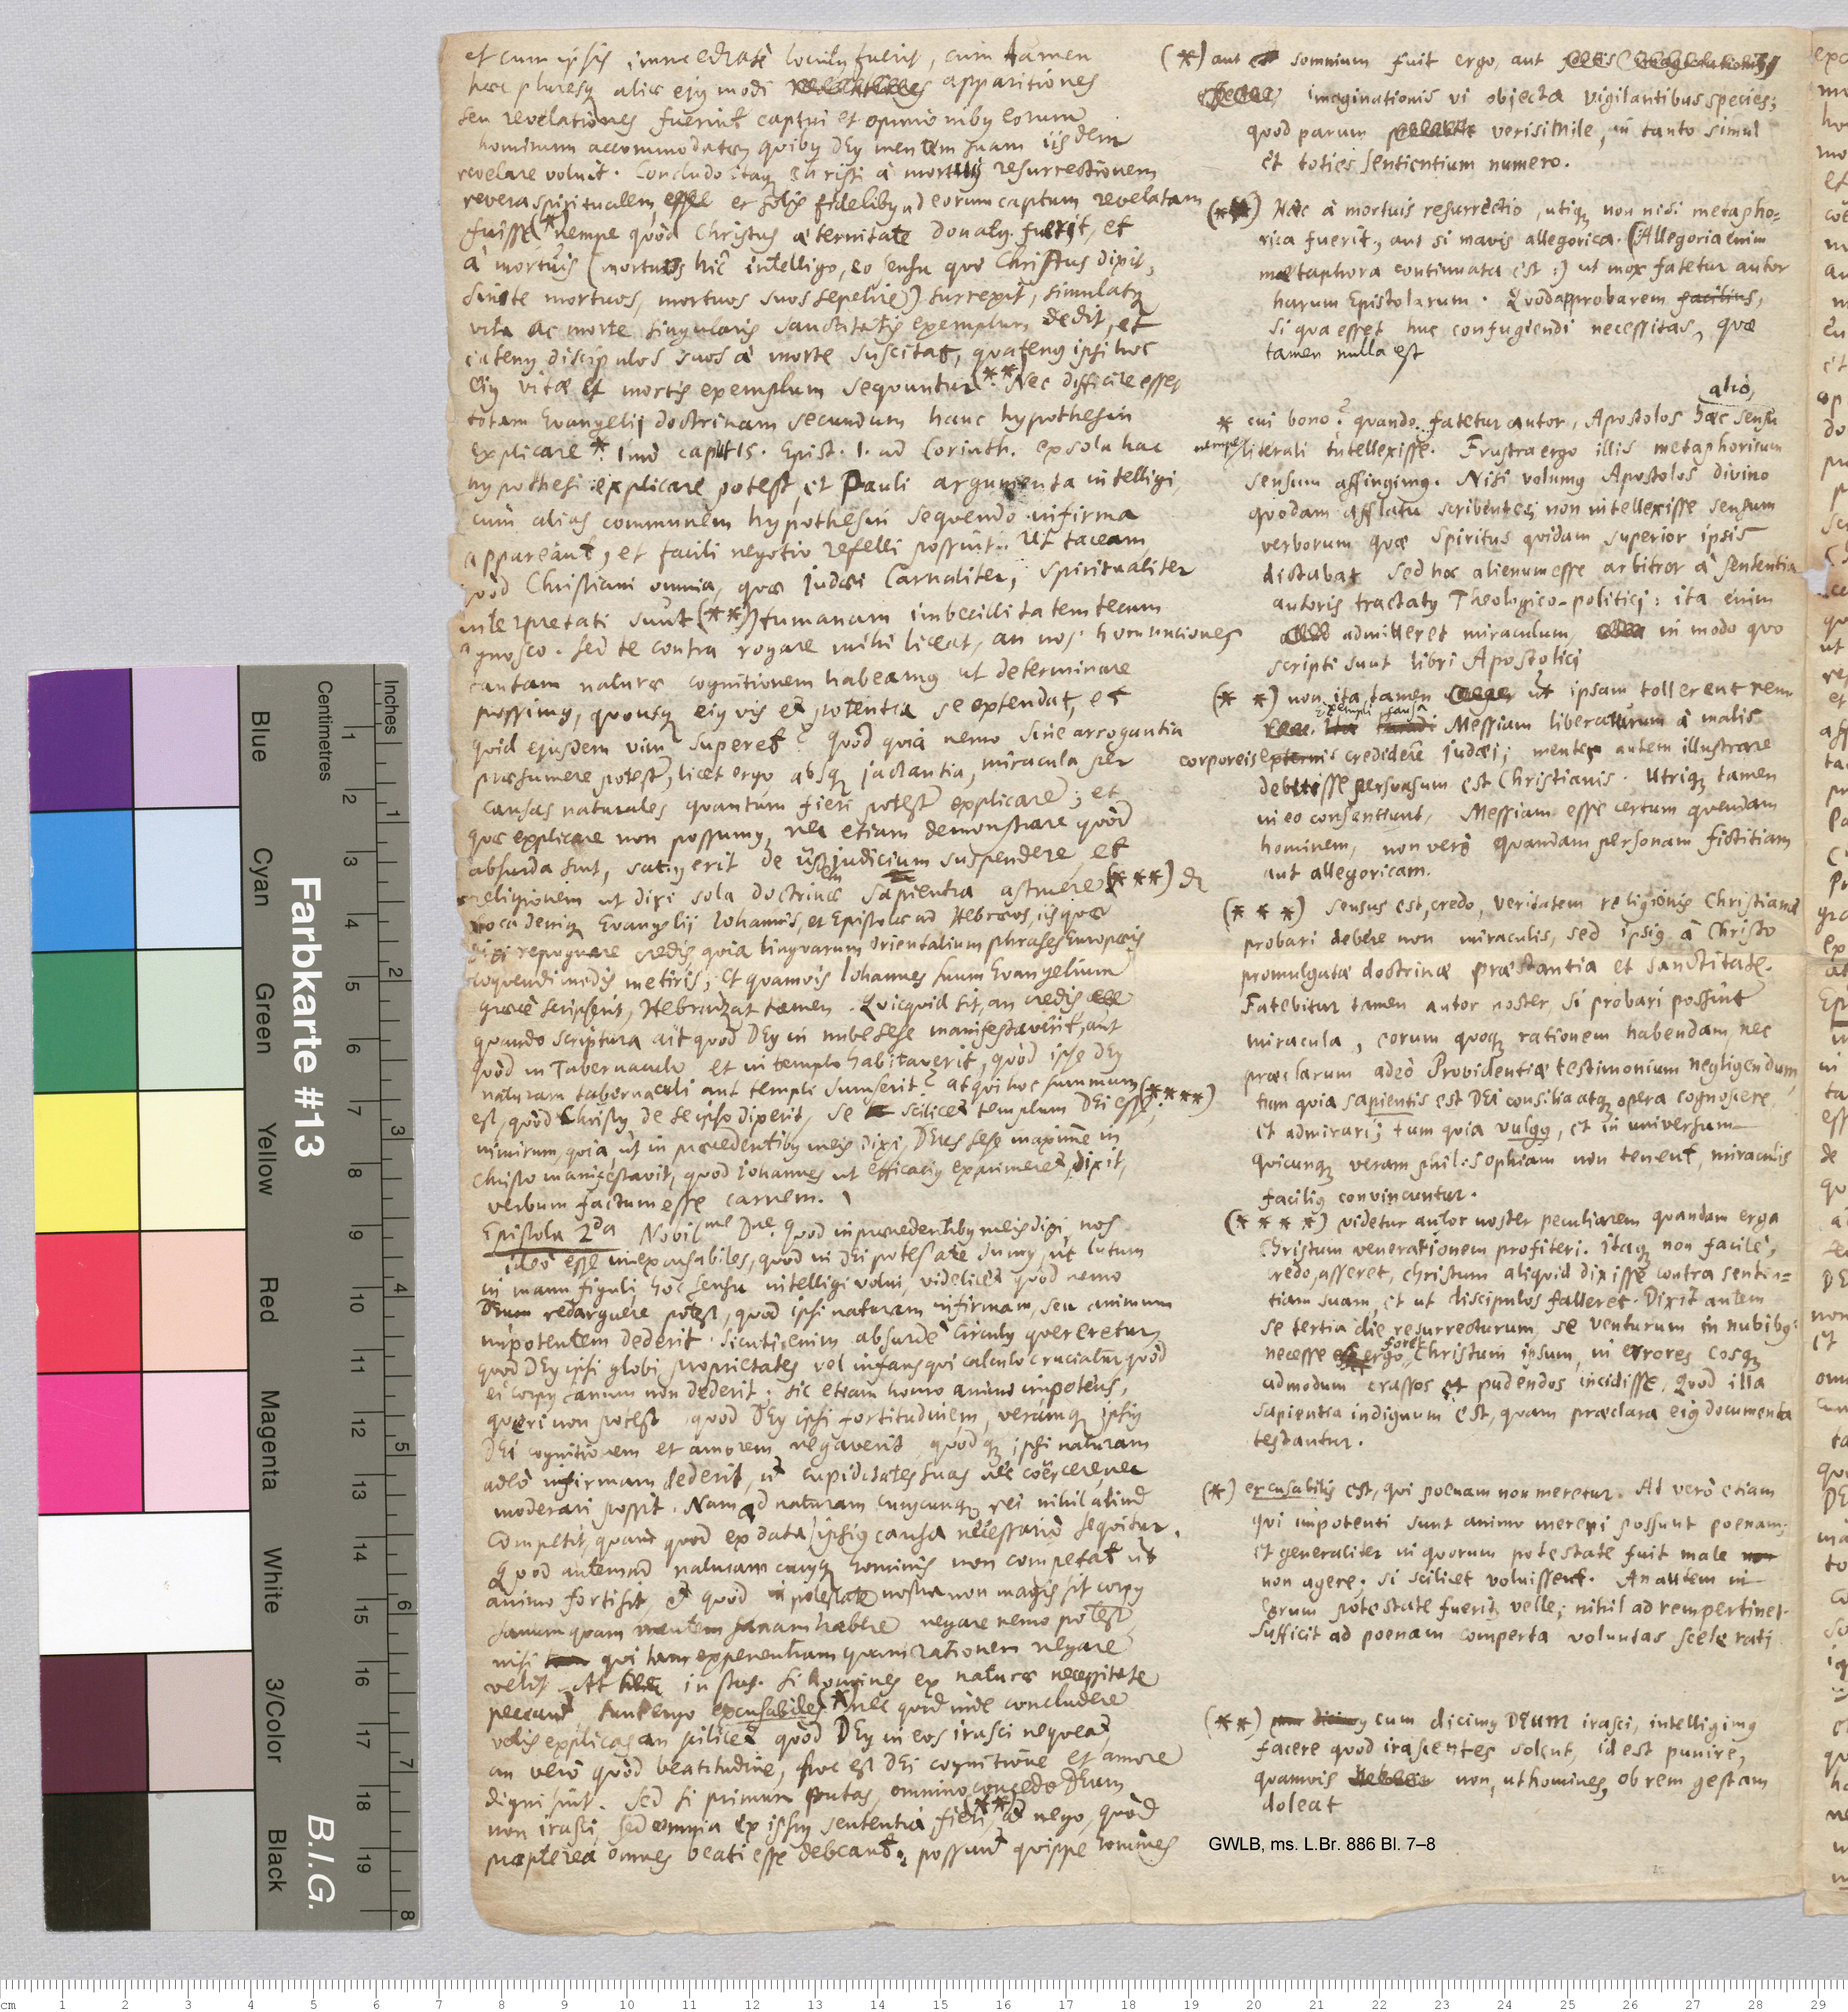 et cum ipsis immediatè locutus fuerit, cum tamen
hæc pluresq alie ejusmodi apparitiones
seu revelationes fuerint captui et opinionibus eorum
hominum accommodatæ, quibus Deus mentem suam iisdem
revelare voluit. Concludo itaq Christi à mortuis resurrectionem
revera spiritualem et solis fidelibus ad eorum captum revelatam
fuisse (*) nempe quòd Christus æternitate donatus fuerit, et
à mortuis (mortuos hîc intelligo, eo sensu quo Christus dixit,
sinite mortuos, mortuos suos sepelire) surrexit, simulatq
vita ac morte singularis sanctitatis exemplum dedit, et
eatenus discipulos suos à morte suscitat, quatenus ipsi hoc
ejus vitæ et mortis exemplum sequuntur (**). Nec difficile esset
totam Evangelij doctrinam secundum hanc hypothesin
explicare *. Imo caput 15. Epist. 1. ad Corinth. ex sola hac
hypothesi explicare potest, et Pauli argumenta intelligi,
cum alias communem hypothesin sequendo infirma
appareant, et facili negotio refelli possint. Ut taceam
quòd Christiani omnia, quæ Judæi carnaliter, spiritualiter
interpretati sunt (**) Humanam imbecillitatem tecum
agnosco. Sed te contra rogare mihi liceat, an nos homunciones
tantam naturæ cognitionem habeamus ut determinare
possimus, quousq ejus vis et potentia se extendat, et
quid ejusdem vim superet? Quod quia nemo sine arrogantia
præsumere potest, licet ergo absq jactantia, miracula per
causas naturales quantum fieri potest explicare; et
quæ explicare non possumus, nec etiam demonstrare quòd
absurda sint, satius erit de iis judicium suspendere et
religionem ut dixi sola doctrinæ sapientia astruere (***)
loca deniq Evangelij Iohannis, et Epistolæ ad Hebræos, iis quæ
dixi repugnare credis quia linguarum Orientalium phrases Europæis
loquendi modis metiris; Et quamvis Iohannes suum Evangelium
græcè scripserit, Hebraizat tamen. Quicquid sit, an credis
quando scriptura ait quod Deus in nube sese manifestaverit, aut
quòd in Tabernaculo et in templo habitaverit, quod ipse Deus
naturam tabernaculi aut templi sumserit? atqui hoc summum (****)
est, quòd Christus de se ipso dixerit, se scilicet templum Dei esse,
nimirum, quia ut in præcedentibus meis dixi, Deus sese maxime in
Christo manifestavit, quod Iohannes ut efficacius exprimeret, dixit,
verbum factum esse carnem.
Epistola 2da Nobilme Dne. Quod in præcedentibus meis dixi, nos
ideo esse inexcusabiles, quod in Dei potestate sumus, ut lutum
in manu figuli, hoc sensu intelligi volui, videlicet quòd nemo
Deum redarguere potest, quod ipsi naturam infirmam, seu animum
impotentem dederit. Sicuti enim absurdè circulus quereretur,
quod Deus ipsi globi proprietates vel infans qui calculo cruciatur quòd
ei corpus sanum non dederit; sic etiam homo animo impotens,
queri non potest, quod Deus ipsi fortitudinem, veramq ipsius
Dei cognitionem et amorem negaverit, quodq ipsi naturam
adeò infirmam dederit, ut cupiditates suas nec coërcere, nec
moderari possit. Nam ad naturam cujuscunq rei nihil aliud
competit, quàm quod ex data ipsius causa necessariò sequitur.
Quod autem ad naturam cujusq hominis non competat ut
animo forti sit, et quòd in potestate nostra non magis sit corpus
sanum quam mentem sanam habere negare nemo potest,
nisi qui tam experientiam quam rationem negare
velit. At instas. si homines ex naturæ necessitate
peccant, sunt ergo excusabiles *, nec quod inde concludere
velis explicas an scilicet quòd Deus in eos irasci nequeat,
an verò quòd beatitudine, hoc est Dei cognitione et amore
digni sint. Sed si primum putas, omnino concedo Deum
non irasci, sed omnia ex ipsius sententia fieri (**), at nego, quòd
propterea omnes beati esse debeant; possunt quippe homines
(*) aut somnium fuit ergo, aut
imaginationis vi objecta vigilantibus species;
quod parum verisimile, in tanto simul
et toties sentientium numero.
(**) Hæc à mortuis resurrectio, utiq non nisi metapho=
rica fuerit, aut si mavis allegorica. (Allegoria enim
metaphora continuata est:) ut mox fatetur autor
harum Epistolarum. Quod approbarem facilius,
si qua esset huc confugiendi necessitas, quæ
tamen nulla est
alio,
* cui bono? quando fatetur autor, Apostolos hæc sensu
nempe literali intellexisse. Frustra ergo illis metaphoricum
sensum affingimus. Nisi volumus Apostolos divino
quodam afflatu scribentes, non intellexisse sensum
verborum quæ Spiritus quidam superior ipsis
dictabat Sed hoc alienum esse arbitror à sententia
autoris tractatus Theologico-politici: ita enim
admitteret miraculum, in modo quo
scripti sunt libri Apostolici
(**) non ita tamen ut ipsam tollerent rem
exempli causa Messiam liberaturum à malis
corporeis externis credidere Judæi; mentes autem illustrare
debuisse persuasum est Christianis. Utriq tamen
in eo consentiunt, Messiam esse certum quendam
hominem, non verò quandam personam fictitiam
aut allegoricam.
(***) Sensus est, credo, veritatem religionis Christianæ
probari debere non miraculis, sed ipsius à Christo
promulgatæ doctrinæ præstantia et sanctitate.
Fatebitur tamen autor noster, si probari possint
miracula, eorum quoq rationem habendam, nec
præclarum adeò Providentiæ testimonium negligendum,
tum quia sapientis est Dei consilia atq opera cognoscere,
et admirari; tum quia vulgus, et in universum
quicunq veram philosophiam non tenent, miraculis
facilius convincuntur.
(****) videtur autor noster peculiarem quandam erga
Christum venerationem profiteri. itaq non facilè,
credo, asseret, Christum aliquid dixisse contra senten=
tiam suam, et ut discipulos falleret. Dixit autem
se tertia die resurrecturum, se venturum in nubibus:
necesse foret ergo Christum ipsum, in errores eosq
admodum crassos et pudendos incidisse, Quod illa
sapientia indignum est, quam præclara ejus documenta
testantur.
(*) excusabilis est, qui poenam non meretur. At verò etiam
qui impotenti sunt animo mereri possunt poenam,
et generaliter in quorum potestate fuit male
non agere, si scilicet voluissent. An autem in
eorum potestate fuerit velle, nihil ad rem pertinet.
Sufficit ad poenam comperta voluntas scelerati
(**) cum dicimus Deum irasci, intelligimus
facere quod irascentes solent, id est punire,
quamvis non, ut homines, ob rem gestam
doleat
GWLB, ms. L.Br. 886 Bl. 7–8
Farbkarte #13
B.I.G.
Centimetres
Inches
Blue
Cyan
Green
Yellow
Red
Magenta
White
3/Color
Black
1 2 3 4 5 6 7 8 9 10 11 12 13 14 15 16 17 18 19
1 2 3 4 5 6 7 8
cm 1 2 3 4 5 6 7 8 9 10 11 12 13 14 15 16 17 18 19 20 21 22 23 24 25 26 27 28 29